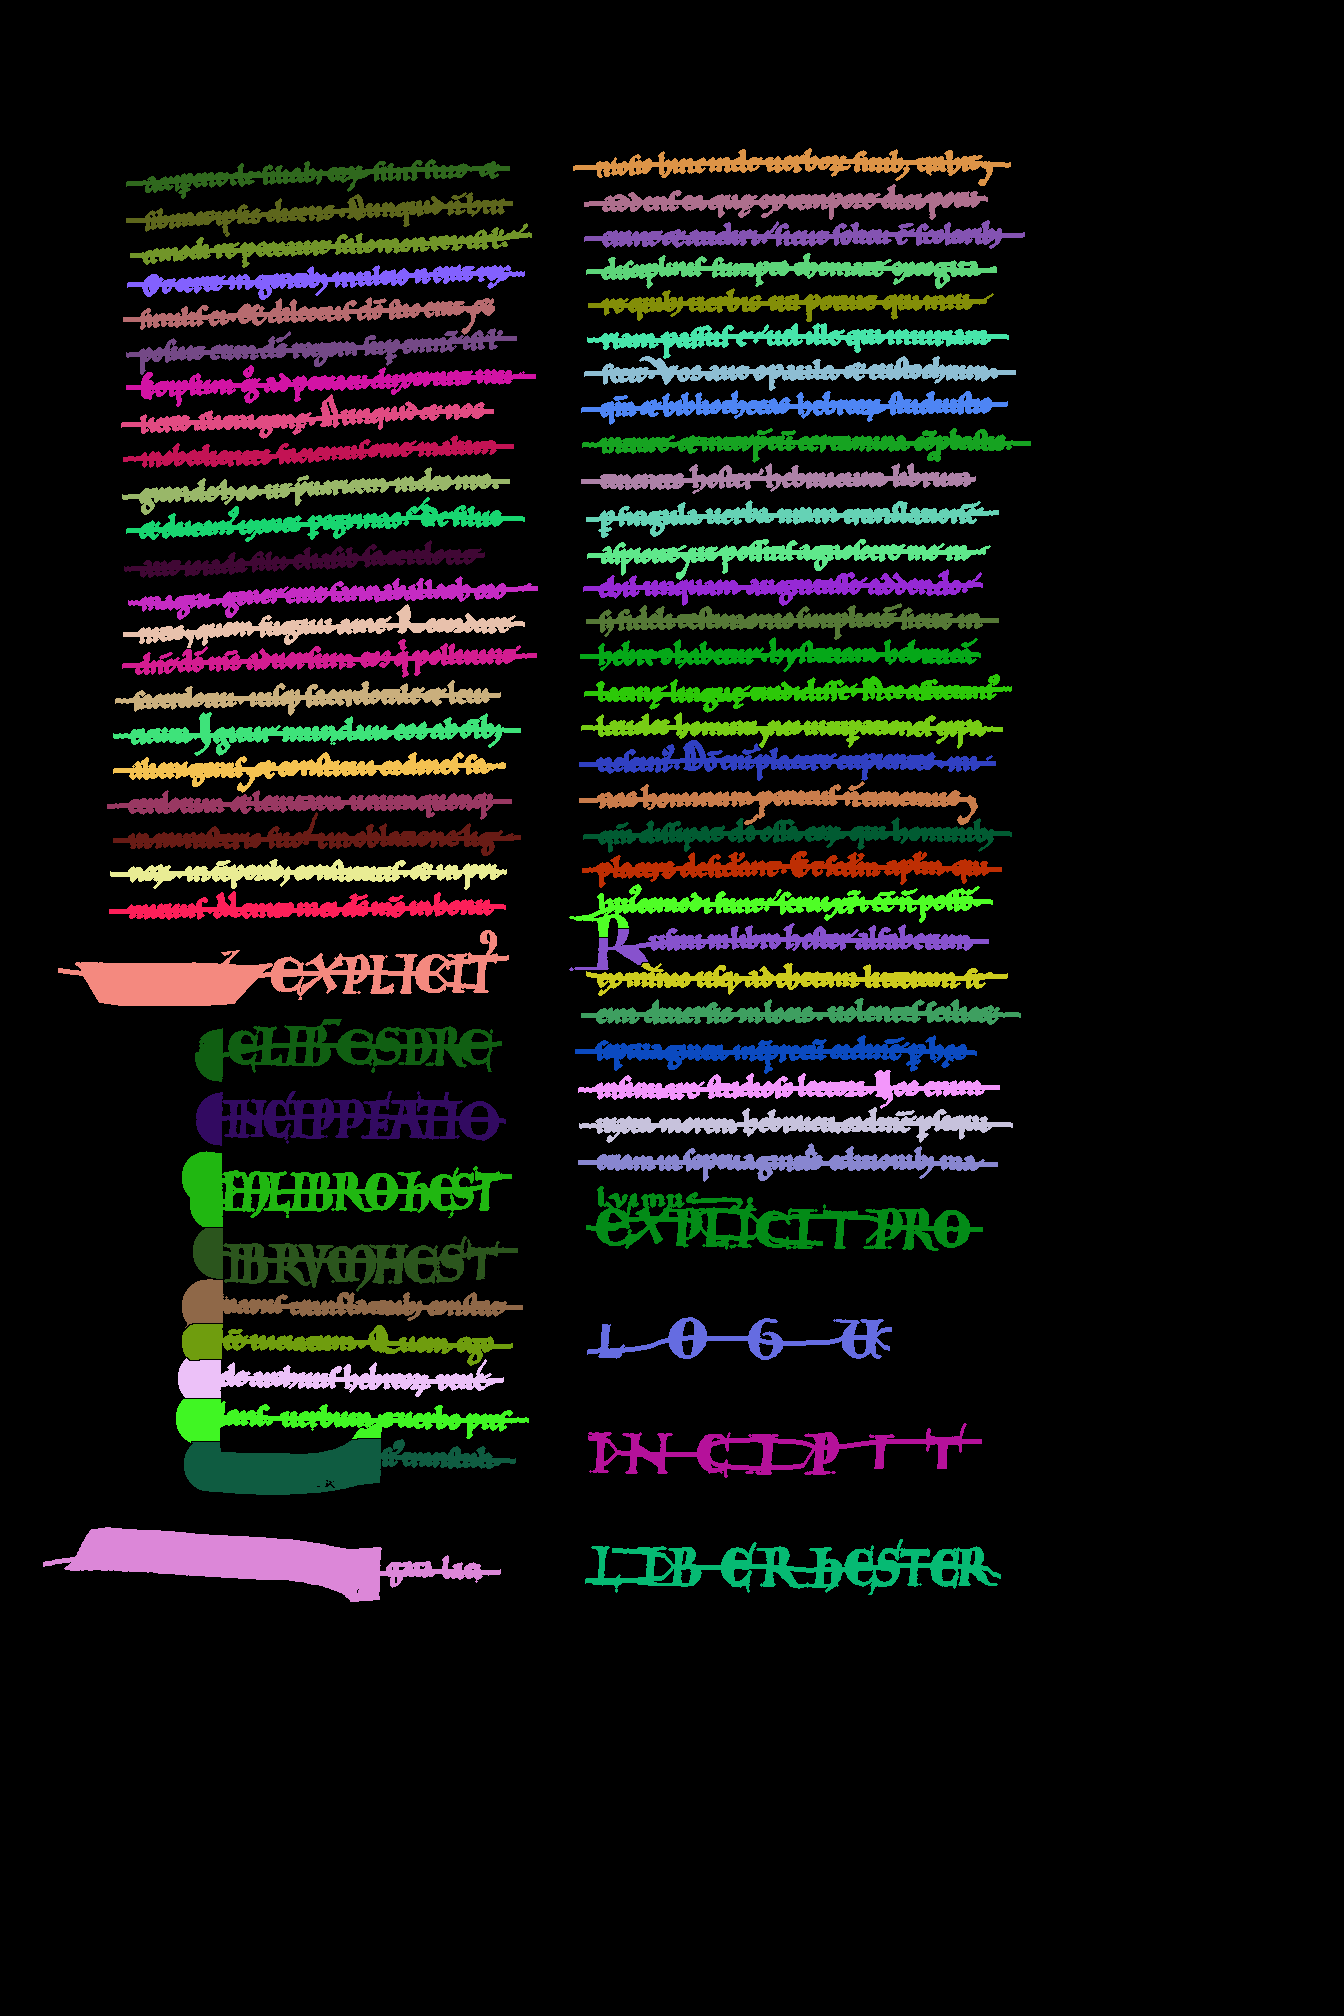 accipietis de filiab; eorꝝ filiis suis et
sibimetipsis dicens. Nunquid n̄ hui
cemodi re peccauit salomon rex isrl.
Et certe in gentib; multis n erat rex
similis ei. Et dilectus dō suo erat et
posuit eum ds̄ regem sup omnē isrl.
Et ipsum g ad peccatum duxerunt mu
lieres alienigenę. Nunquid et nos
inobedientes faciemus omne malum
grande hoc ut p̄uaricem in deo nro.
et ducamꝰ uxores pegrinas. De filiis
aut ioiada filii eliasib sacerdotis
magni gener erat sannaballath oro
nites, quem fugaui a me. Recordare
dn̄e ds̄ ms̄ aduersum eos q polluunt
sacerdotiu. iusq; sacerdotale et leui
ticum Igitur mundaui eos ab oīb;
alienigenis, et constitui ordines sa
cerdotum et leuitarum unumquenq;
in ministerio suo, et in oblatione lig
noꝝ in tēporib; constitutis et in pri
mitiis. Memento mei ds̄ ms̄ in bonu
EXPLICIT
LIB ESDRE
INCIP PFATIO
IN LIBRO hEST
LIBRVM HEST
uariis translatorib; constat
eē uiciatum. Quem ego
de archiuis hebreoꝝ releu
ans. uerbum e uerbo pres
siꝰ transtuli.
quē lib
niosis hinc inde uerboꝝ sinib; trahit,
addens ea quę ex tempore dici pot
erant et audiri. sicut solitu ē scolarib;
disciplinis sumpto themate excogita
re quib; uerbis uti potuit qui iniu
riam passus ē. uel ille qui iniuriam
fecit. Vos aut o paula et eustochium.
qm̄ et bibliothecas hebreoꝝ studuistis
intrare et interp̄tū certamina cōphastis.
tenentes hester hebraicum librum
ꝑ singula uerba nram translationē
aspicite, ut possitis agnoscere me n
chil unquam augmentasse addendo.
s; fideli testimonio simplicit sicut in
hebreo habetur. hystoriam hebraicā
latinę linguę tradidisse. Nec affectamꝰ
laudes hominū, nec uituperationes exp
uescimꝰ. Dō enī placere cupientes. mi
nas hominum penitus n̄ timemus,
qm̄ dissipat ds̄ ossa eoꝝ qui hominib;
placere desiderant. Et scdm aplm qui
huiꝰcemodi sunt. serui xp̄i eē n̄ possū
Rursum in libro hester alfabetum
ex minio usq; ad thetam litteram fe
cim diuersis in locis. uolentes scilicet
septuaginta interpretū ordinē ꝑ hęc
insinuare studioso lectori. Nos enim
iuxta morem hebraicū ordinē psequi
etiam in septuaginta editionib; ma
luimus.
EXPLICIT PRO
LOGU
INCIPIT
LIBER hESTER